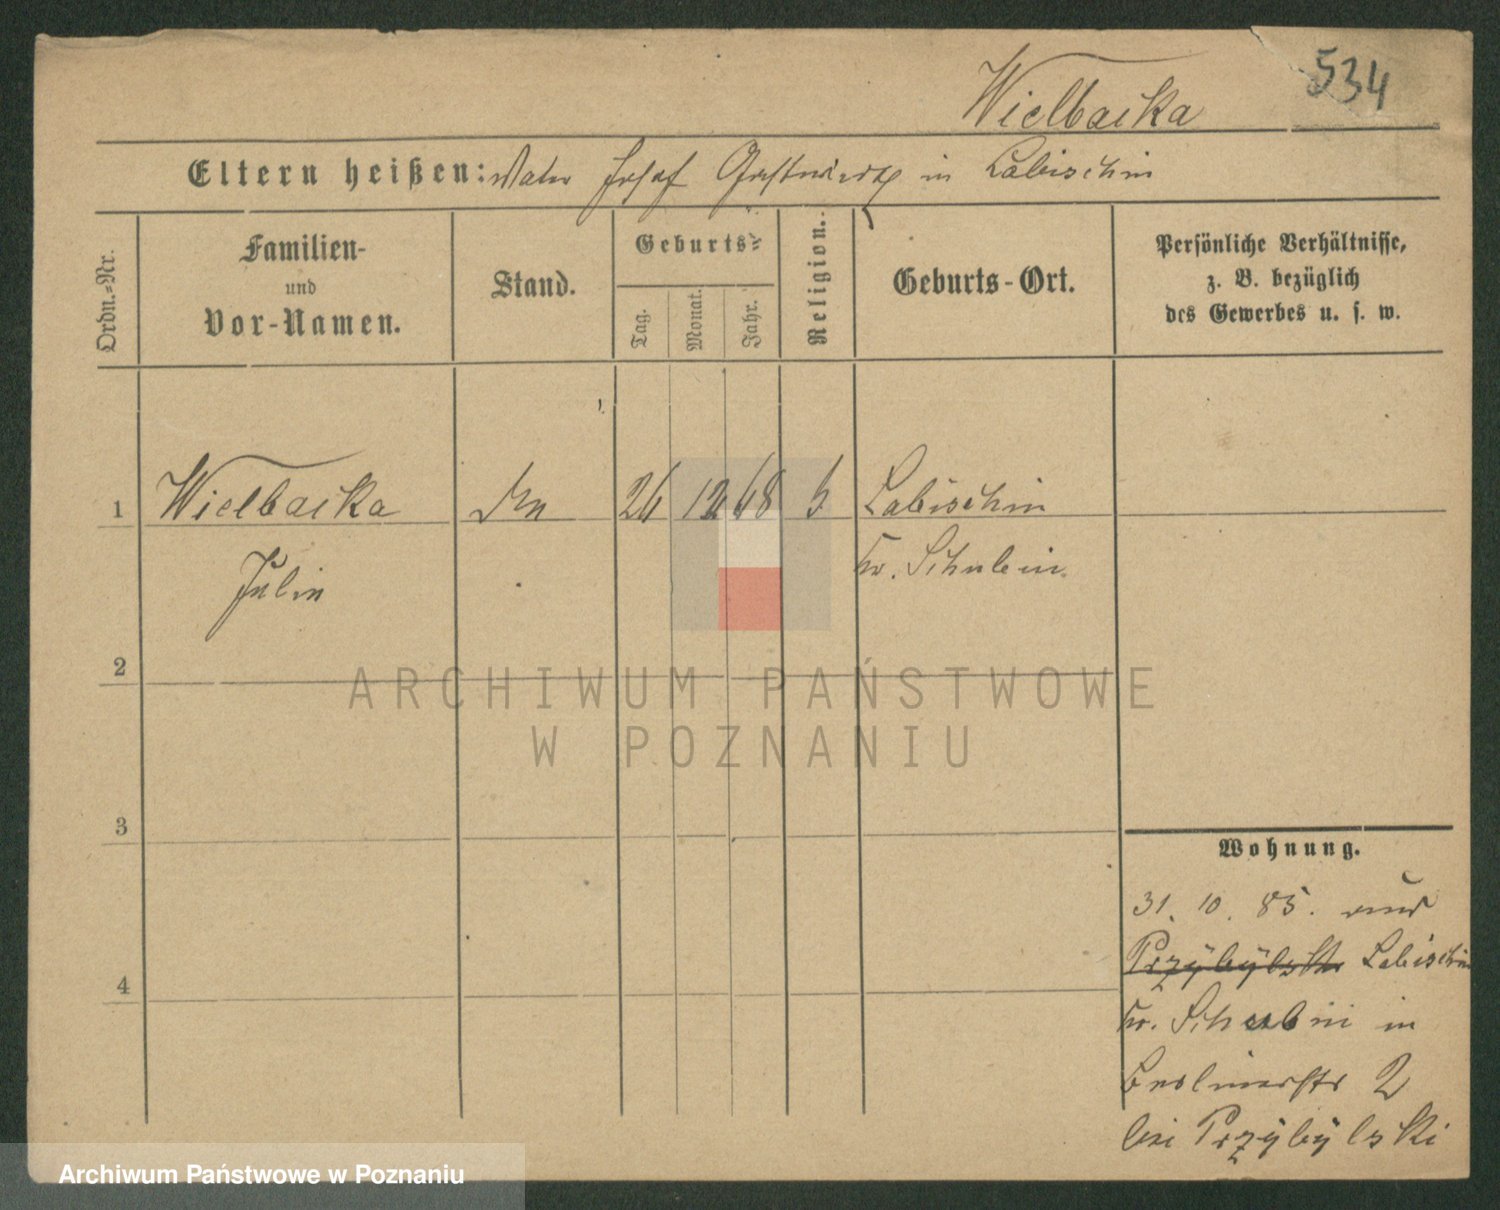 534
Wielbacka
Eltern heißen: Vater Josef Gastwirth in Labischin
Ordn.-Nr.
Familien-
und
Vor-Namen.
Stand.
Geburts-
Tag.
Monat.
Jahr.
Religion.
Geburts-Ort.
Persönliche Verhältnisse,
z. B. bezüglich
des Gewerbes u. s. w.
1 Wielbacka 26 12 68 Labischin
Julia Kr. Schubin.
2
3
4
Wohnung.
31. 10. 85. aus
Przybylski Labischin
Kr. Schubin in
Berlinerstr 2
bei Przybylski
ARCHIWUM PAŃSTWOWE
W POZNANIU
Archiwum Państwowe w Poznaniu